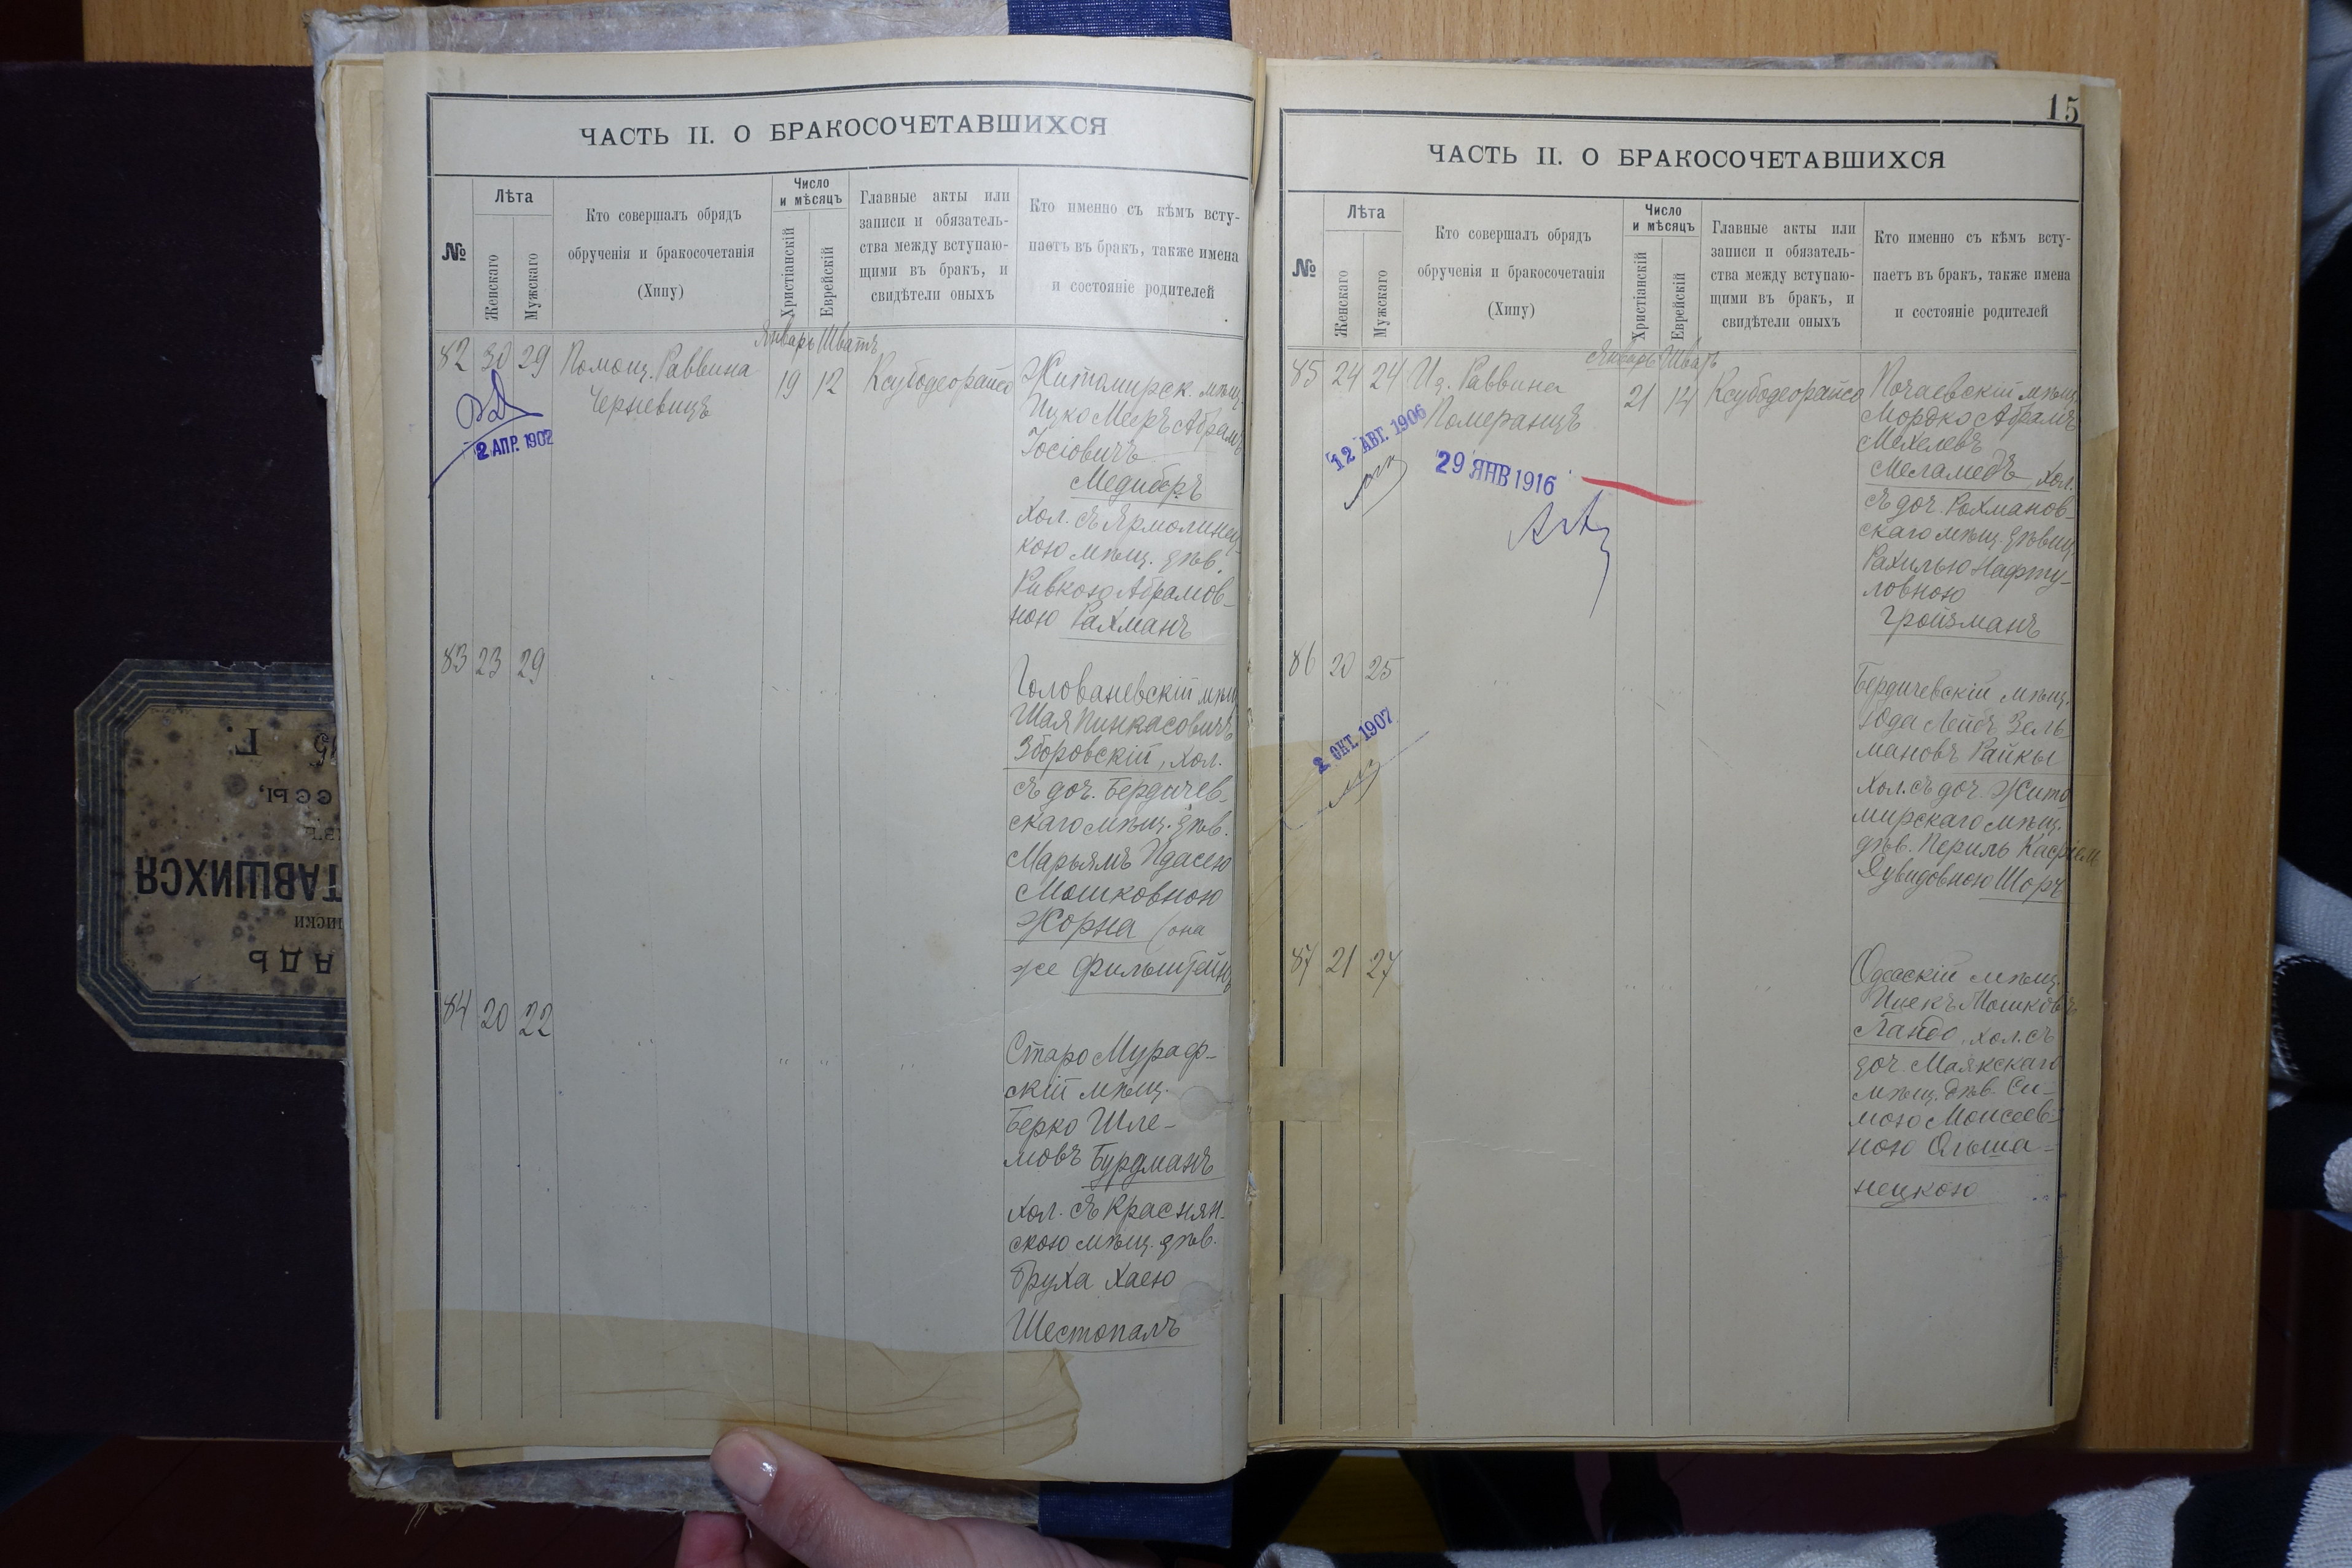 ЧАСТЬ II. О БРАКОСОЧЕТАВШИХСЯ
№
Лѣта
Женскаго
Мужскаго
Кто совершалъ обрядъ
обрученія и бракосочетанія
(Хипу)
Число
и мѣсяцъ
Христіанскій
Еврейскій
Главные акты или
записи и обязатель-
ства между вступаю-
щими въ бракъ, и
свидѣтели оныхъ
Кто именно съ кѣмъ всту-
паетъ въ бракъ, также имена
и состояніе родителей
Январь Шватъ
82 30 29 Помощ. Раввина 19 12 Ксубодеорайсо
Черневицъ
2 АПР. 1902
Житомирск. мѣщ.
Ицко Меръ Абрамъ
Іосіовичъ
Медиборъ
хол. съ Ярмолинец-
кою мѣщ. дѣв.
Ривкою Абрамов-
ною Рахманъ
83 23 29
Голованевскій мѣщ
Шая Пинкасовичъ
Зборовскій, хол.
съ доч. Бердичев-
скаго мѣщ. дѣв.
Марьямъ Идасею
Мошковною
Жорна (она
же Фильштейнъ
84 20 22
Старо Мураф-
скій мѣщ.
Берко Шле-
мовъ Бурдманъ
хол. съ Краснян-
скою мѣщ. дѣв.
Бруха Хаею
Шестопалъ
15
ЧАСТЬ II. О БРАКОСОЧЕТАВШИХСЯ
№
Лѣта
Женскаго
Мужскаго
Кто совершалъ обрядъ
обрученія и бракосочетанія
(Хипу)
Число
и мѣсяцъ
Христіанскій
Еврейскій
Главные акты или
записи и обязатель-
ства между вступаю-
щими въ бракъ, и
свидѣтели оныхъ
Кто именно съ кѣмъ всту-
паетъ въ бракъ, также имена
и состояніе родителей
Январь Шватъ
85 24 24 Ид. Раввина 21 14 Ксубодеорайсо
Померанцъ
12 АВГ. 1906
29 ЯНВ 1916
Почаевскій мѣщ.
Мордко Абрамъ
Мехелевъ
Меламедъ, хол.
съ доч. Рохманов-
скаго мѣщ. дѣвиц.
Рахилью Нафту-
ловною
Гройзманъ
86 20 25
2 ОКТ. 1907
Бердичевскій мѣщ.
Юда Лейбъ Зель-
мановъ Райкы
хол. съ доч. Жито
мирскаго мѣщ.
дѣв. Перль
Дувидовною Шоръ
87 21 27
Одесскій мѣщ.
Ицекъ Мошковъ
Ландо, хол. съ
доч. Маякскаго
мѣщ. дѣв. Си-
мою Моисеев-
ною Ольша-
нецкою
АДЬ
ТАВШИХСЯ
ССЫ,
15 Г.